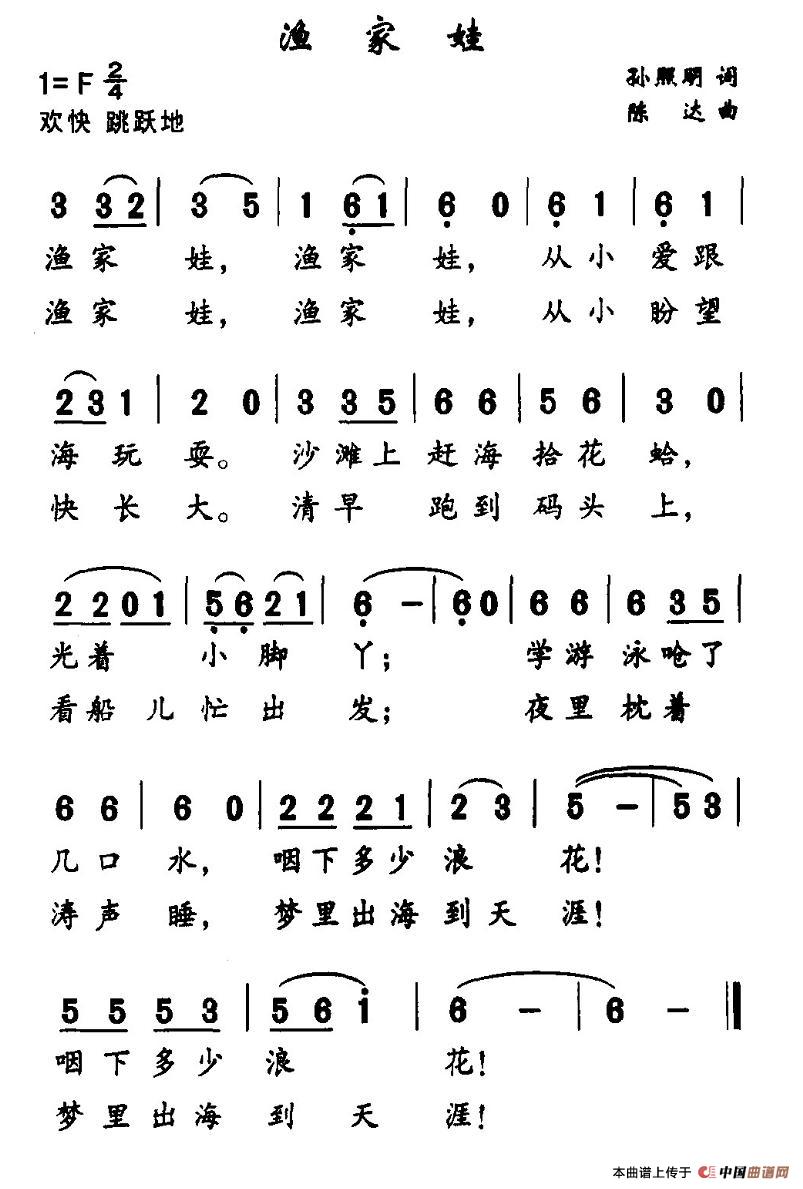 渔家娃
1=F 2/4
孙照明 词
欢快 跳跃地
陈达 曲
3 3 2 | 3 5 | 1 6 1 | 6 0 | 6 1 | 6 1 |
渔家 娃, 渔家 娃, 从小 爱跟
渔家 娃, 渔家 娃, 从小 盼望
2 3 1 | 2 0 | 3 3 5 | 6 6 | 5 6 | 3 0 |
海玩 耍。 沙滩上 赶海 拾花 蛤,
快长 大。 清早 跑到 码头 上,
2 2 0 1 | 5 6 2 1 | 6 - | 6 0 | 6 6 | 6 3 5 |
光着 小脚 丫; 学游 泳呛了
看船儿忙出 发; 夜里 枕着
6 6 | 6 0 | 2 2 2 1 | 2 3 | 5 - | 5 3 |
几口 水, 咽下多少 浪 花!
涛声 睡, 梦里出海 到天 涯!
5 5 5 3 | 5 6 i | 6 - | 6 - ‖
咽下多少 浪 花!
梦里出海 到天 涯!
本曲谱上传于 中国曲谱网